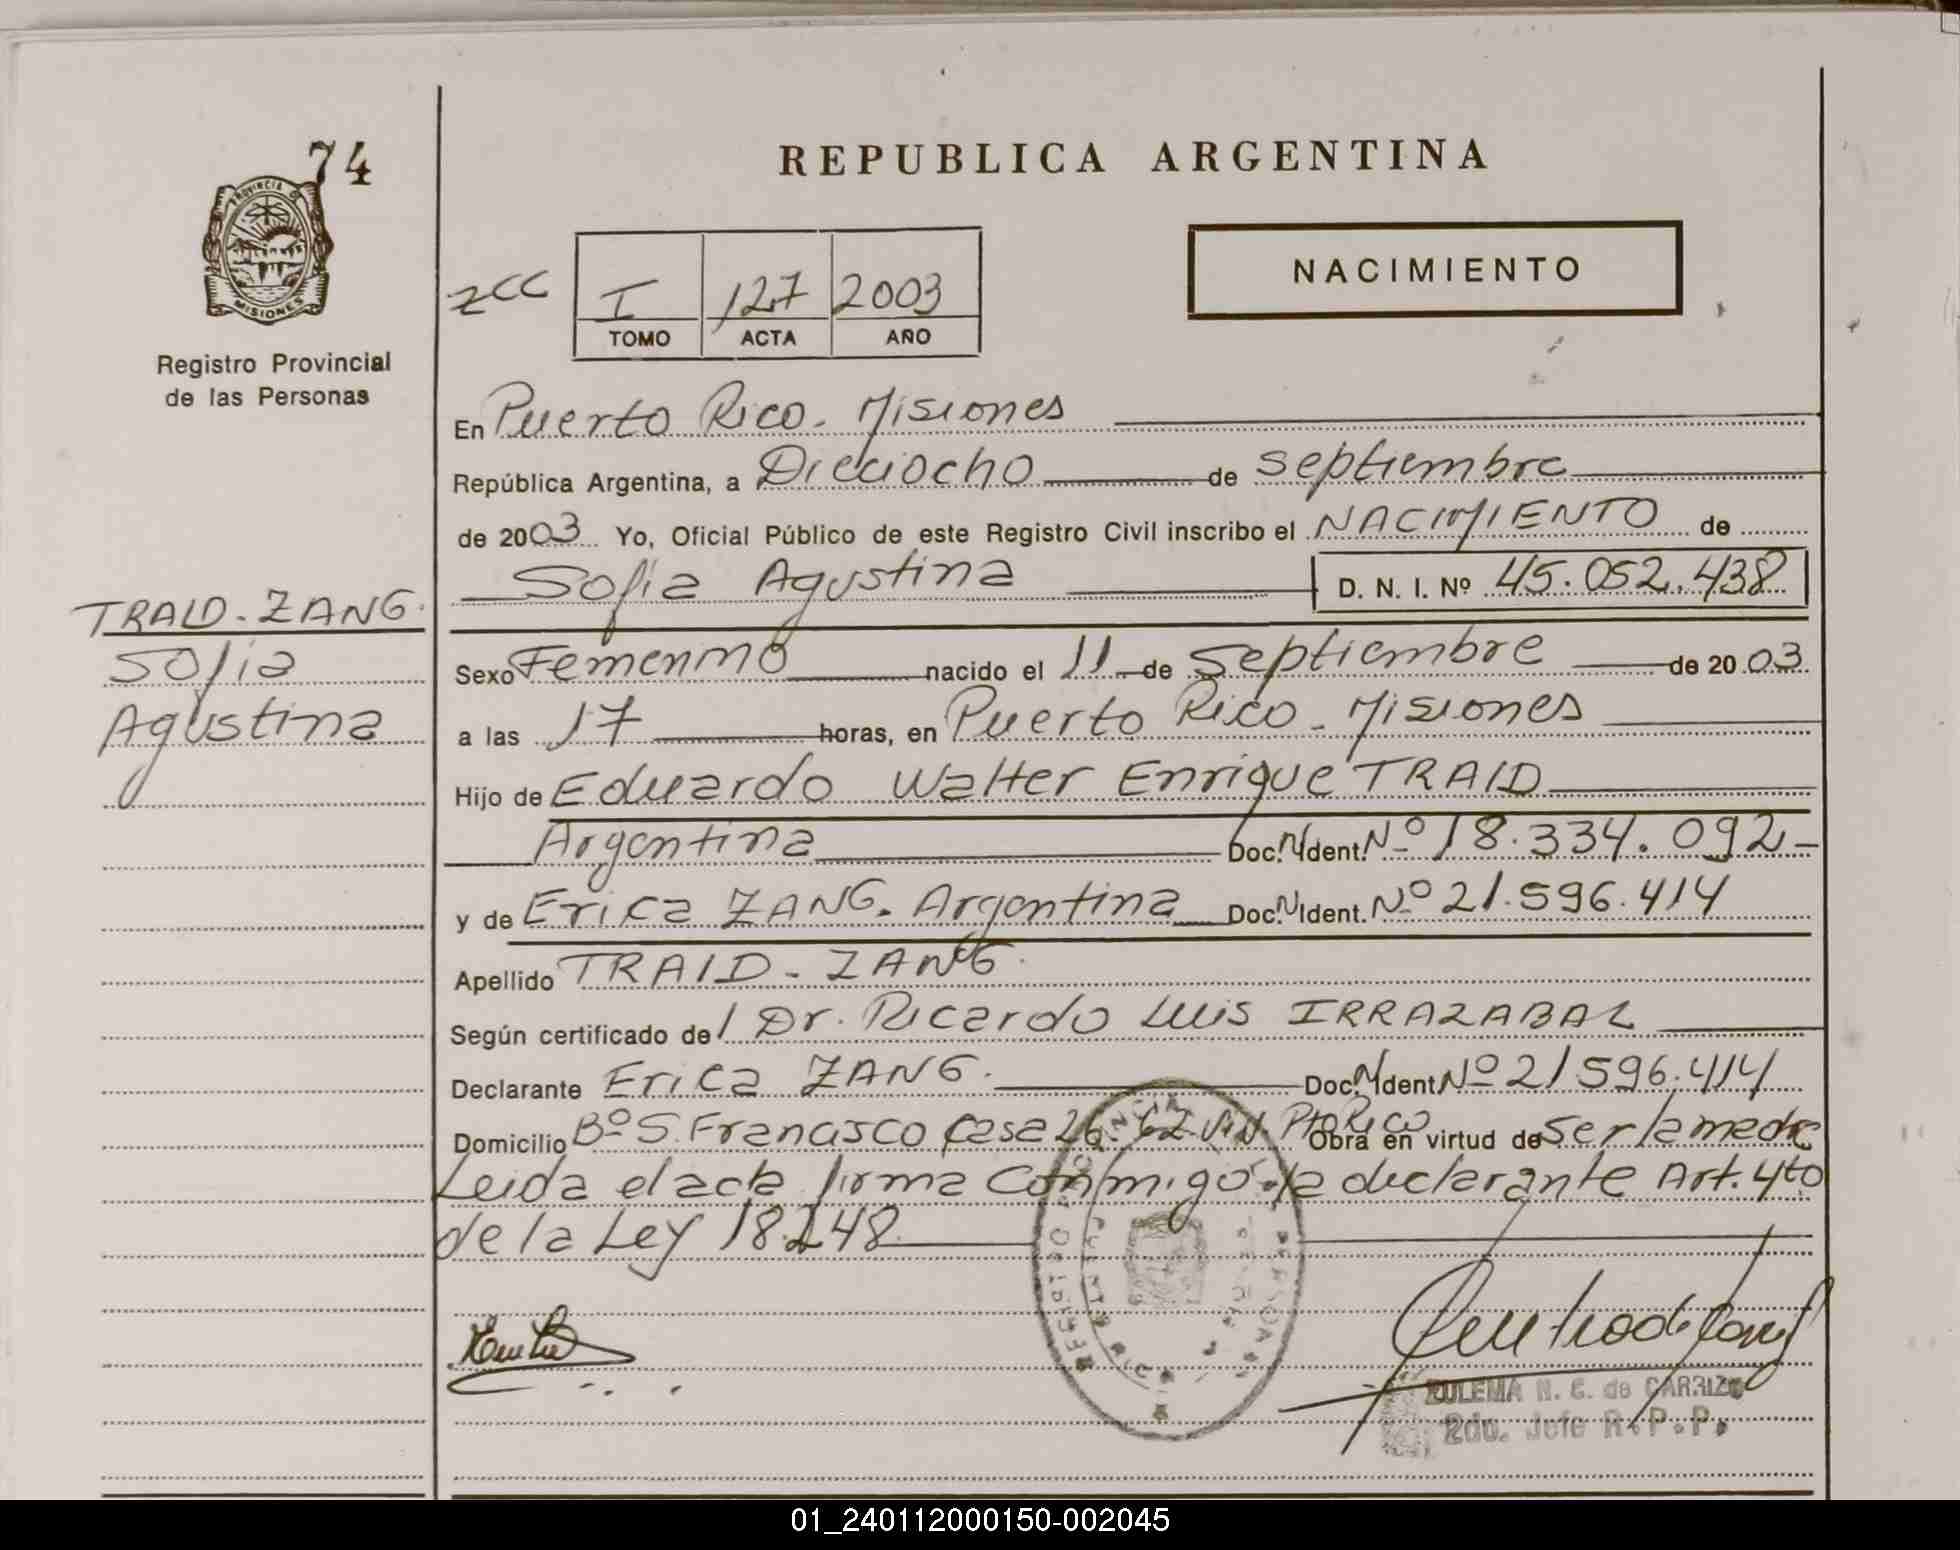 74
PROVINCIA DE
MISIONES
Registro Provincial
de las Personas
REPUBLICA ARGENTINA
NACIMIENTO
zcc I 127 2003
TOMO ACTA AÑO
En Puerto Rico - Misiones
República Argentina, a Dieciocho de septiembre
de 2003 Yo, Oficial Público de este Registro Civil inscribo el NACIMIENTO de
Sofia Agustina D. N. I. Nº 45.052.438
TRAID - ZANG.
Sofia
Agustina
Sexo Femenino nacido el 11 de Septiembre de 2003
a las 17 horas, en Puerto Rico - Misiones
Hijo de Eduardo Walter Enrique TRAID
Argentina Doc. N Ident. Nº 18.334.092-
y de Erica ZANG. Argentina Doc. N Ident. Nº 21.596.414
Apellido TRAID - ZANG.
Según certificado de l Dr. Ricardo Luis IRRAZABAL
Declarante Erica ZANG. Doc. N Ident Nº 21596.414
Domicilio Bº S. Francisco casa 26. 62 Viv. Pto Rico Obra en virtud de ser la madre
Leida el acta firma Conmigo la declarante Art. 4to
de la Ley 18.248
ZULEMA N. C. de CARRIZO
2do. Jefe R. P. P.
01_240112000150-002045